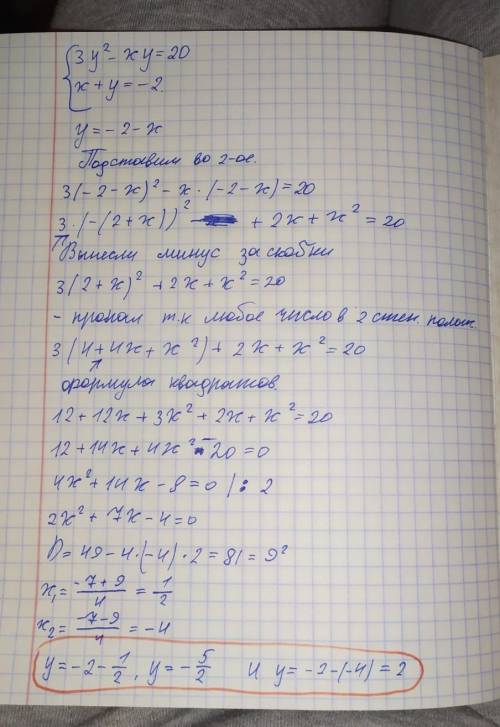 3y² - xy = 20
x + y = -2
y = -2 - x
Подставим во 2-ое.
3(-2 - x)² - x · (-2 - x) = 20
3 · (-(2 + x))² + 2x + x² = 20
Вынесли минус за скобки
3(2 + x)² + 2x + x² = 20
- пропал т.к любое число в 2 степ. полож.
3(4 + 4x + x²) + 2x + x² = 20
формула квадратов.
12 + 12x + 3x² + 2x + x² = 20
12 + 14x + 4x² - 20 = 0
4x² + 14x - 8 = 0 | : 2
2x² + 7x - 4 = 0
D = 49 - 4 · (-4) · 2 = 81 = 9²
x₁ = (-7 + 9)/4 = 1/2
x₂ = (-7 - 9)/4 = -4
y = -2 - 1/2, y = -5/2 и y = -2 - (-4) = 2